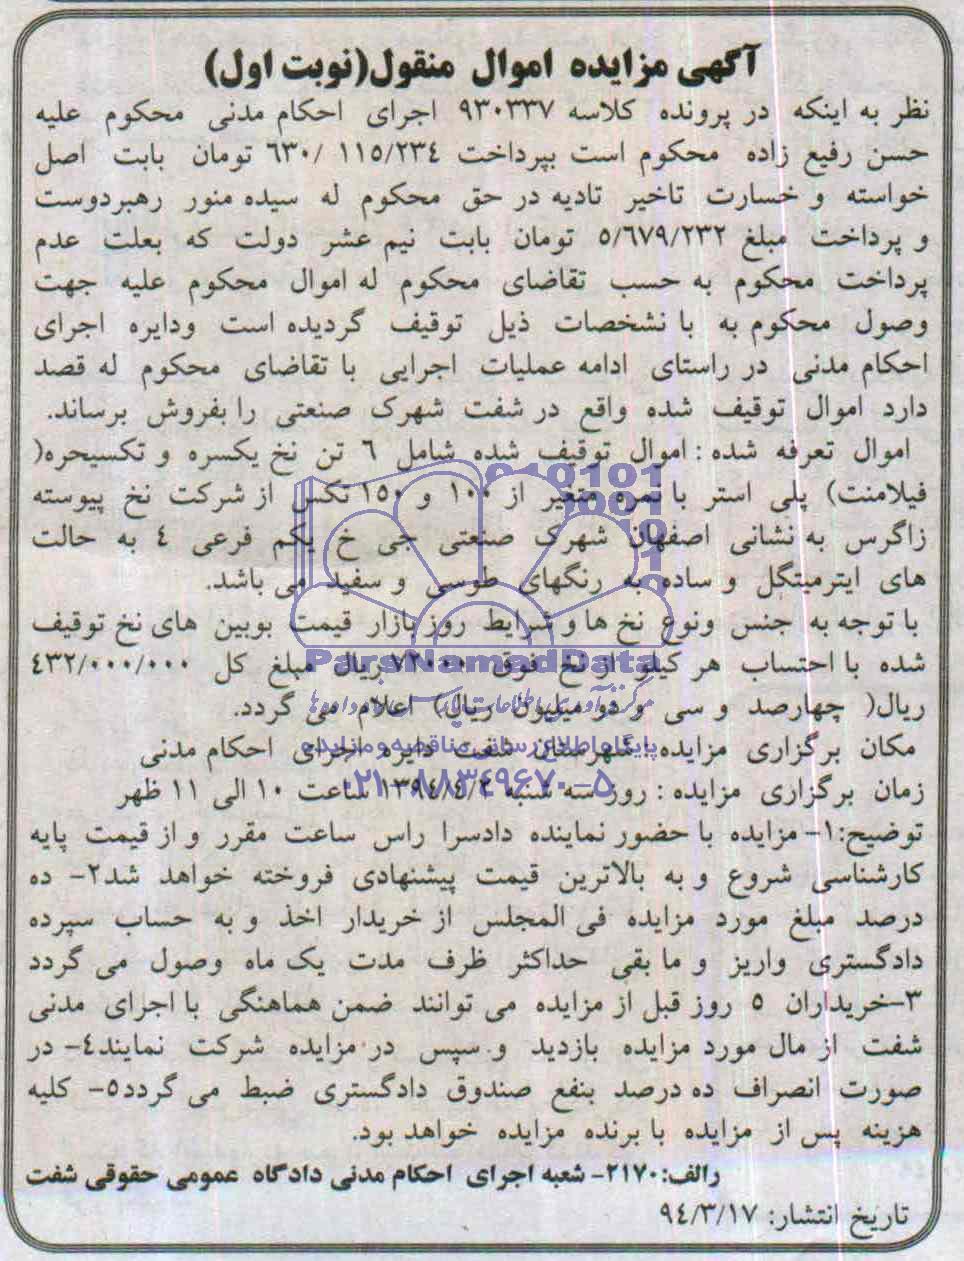 آگهی مزایده اموال منقول(نوبت اول)
نظر به اینکه در پرونده کلاسه ۹۳۰۳۳۷ اجرای احکام مدنی محکوم علیه
حسن رفیع زاده محکوم است بپرداخت ۱۱۵/۲۳۴ /۶۳۰ تومان بابت اصل
خواسته و خسارت تاخیر تادیه در حق محکوم له سیده منور رهبردوست
و پرداخت مبلغ ۵/۶۷۹/۲۳۲ تومان بابت نیم عشر دولت که بعلت عدم
پرداخت محکوم به حسب تقاضای محکوم له اموال محکوم علیه جهت
وصول محکوم به با نشخصات ذیل توقیف گردیده است ودایره اجرای
احکام مدنی در راستای ادامه عملیات اجرایی با تقاضای محکوم له قصد
دارد اموال توقیف شده واقع در شفت شهرک صنعتی را بفروش برساند.
اموال تعرفه شده : اموال توقیف شده شامل ۶ تن نخ یکسره و تکسیحره(
فیلامنت) پلی استر با نمره متغیر از ۱۰۰ و ۱۵۰ تکس از شرکت نخ پیوسته
زاگرس به نشانی اصفهان شهرک صنعتی جی خ یکم فرعی ۴ به حالت
های ایترمیتگل و ساده به رنگهای طوسی و سفید می باشد.
با توجه به جنس ونوع نخ ها و شرایط روز بازار قیمت بوبین های نخ توقیف
شده با احتساب هر کیلو از نخ فوق ۷۲۰۰۰ ریال مبلغ کل ۴۳۲/۰۰۰/۰۰۰
ریال( چهارصد و سی و دو میلیون ریال) اعلام می گردد.
مکان برگزاری مزایده: شهرستان شفت دایره اجرای احکام مدنی
زمان برگزاری مزایده : روز سه شنبه ۱۳۹۴/۴/۲ ساعت ۱۰ الی ۱۱ ظهر
توضیح:۱- مزایده با حضور نماینده دادسرا راس ساعت مقرر و از قیمت پایه
کارشناسی شروع و به بالاترین قیمت پیشنهادی فروخته خواهد شد۲- ده
درصد مبلغ مورد مزایده فی المجلس از خریدار اخذ و به حساب سپرده
دادگستری واریز و ما بقی حداکثر ظرف مدت یک ماه وصول می گردد
۳-خریداران ۵ روز قبل از مزایده می توانند ضمن هماهنگی با اجرای مدنی
شفت از مال مورد مزایده بازدید و سپس در مزایده شرکت نمایند۴- در
صورت انصراف ده درصد بنفع صندوق دادگستری ضبط می گردد۵- کلیه
هزینه پس از مزایده با برنده مزایده خواهد بود.
رالف:۲۱۷۰- شعبه اجرای احکام مدنی دادگاه عمومی حقوقی شفت
تاریخ انتشار: ۹۴/۳/۱۷
ParsNamadData
پایگاه اطلاع رسانی مناقصه و مزایده
۰۲۱-۸۸۳۴۹۶۷۰-۵